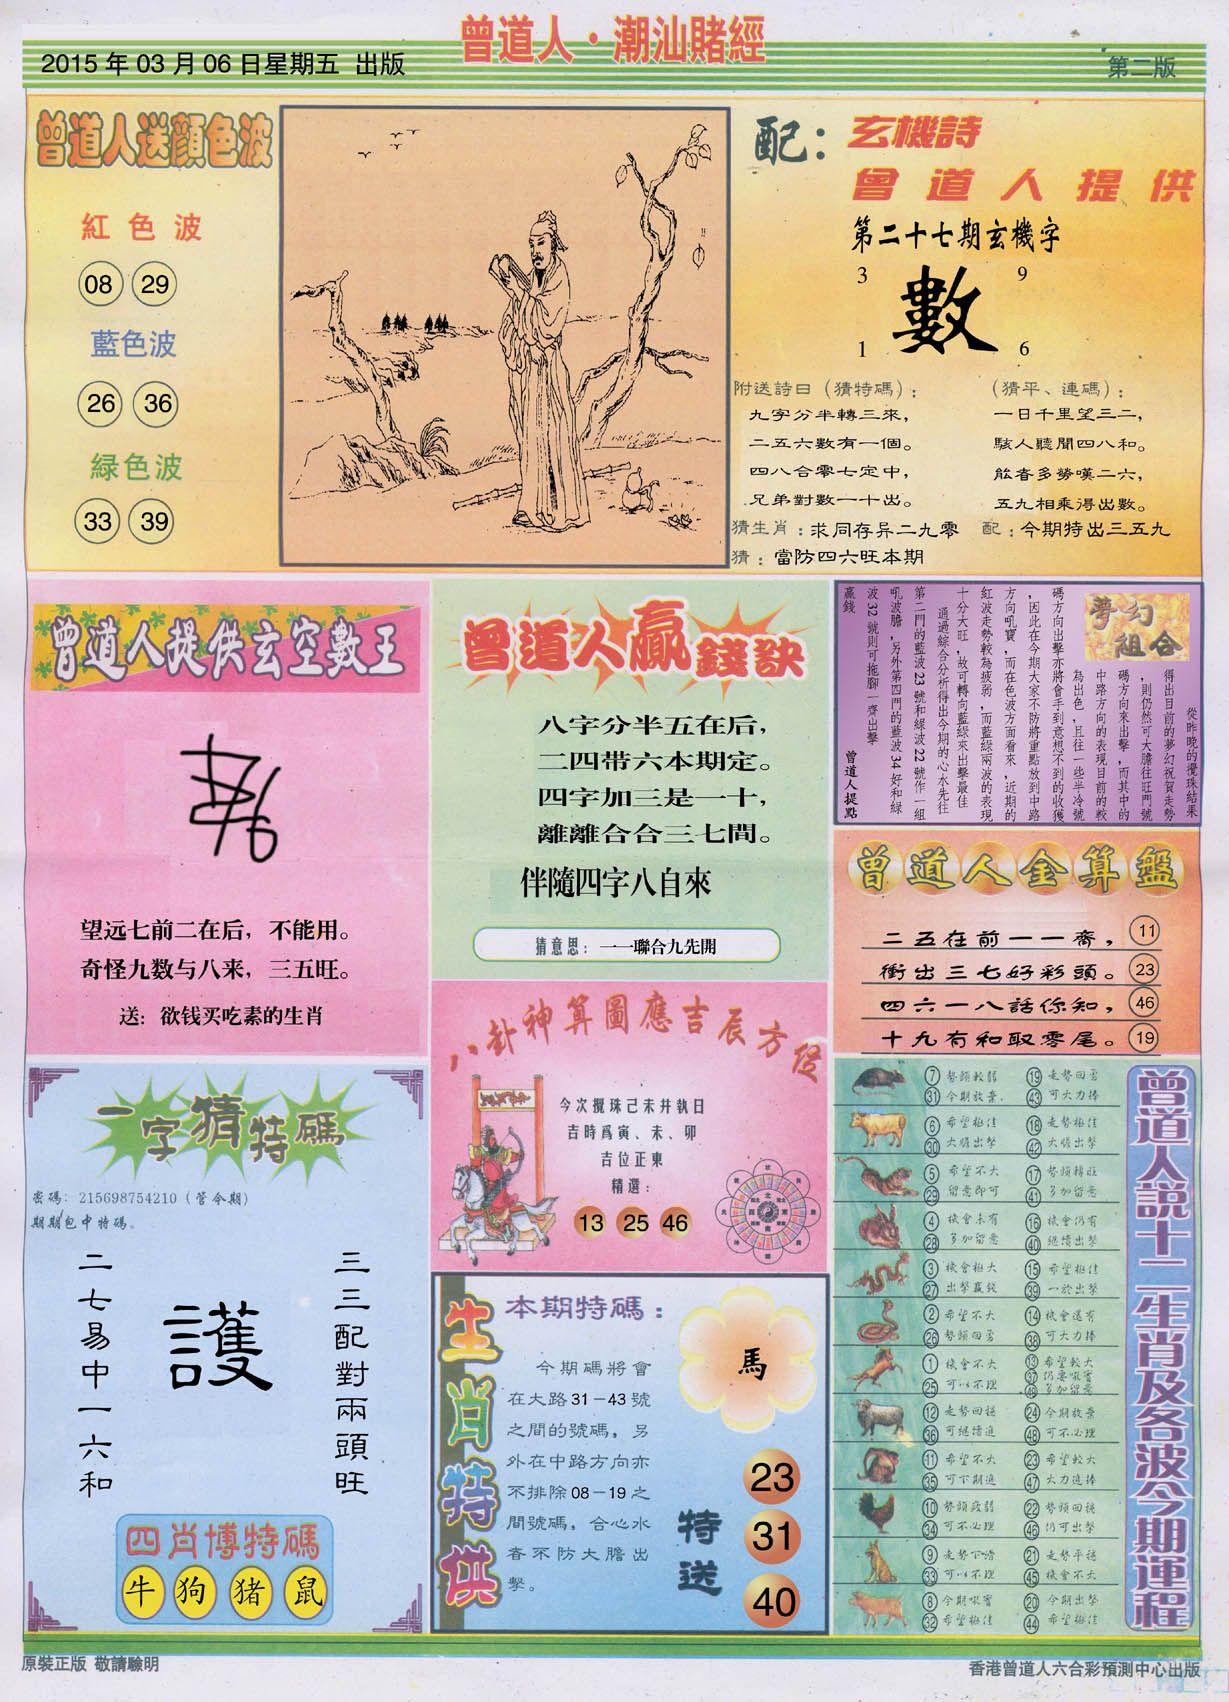 曾道人·潮汕賭經
2015 年 03 月 06 日星期五 出版
第二版
曾道人送顏色波
紅色波
08 29
藍色波
26 36
緑色波
33 39
配：玄機詩
曾道人提供
第二十七期玄機字
3 9
數
1 6
附送詩曰（猜特碼）：
九字分半轉三來，
二五六數有一個。
四八合零七定中，
兄弟對數一十出。
（猜平、連碼）：
一日千里望三二，
駭人聽聞四八和。
能者多勞嘆二六，
五九相乘得出數。
猜生肖：求同存异二九零
配：今期特出三五九
猜：當防四六旺本期
曾道人提供玄空數王
望远七前二在后，不能用。
奇怪九数与八来，三五旺。
送：欲钱买吃素的生肖
曾道人贏錢訣
八字分半五在后，
二四带六本期定。
四字加三是一十，
離離合合三七間。
伴隨四字八自來
猜意思：一一聯合九先開
夢幻組合
從昨晚的攪珠結果
得出目前的夢幻祝賀走勢
，則仍然可大膽往旺門號
碼方向來出擊，而其中的
中路方向的表現目前的較
為出色，且往一些半冷號
碼方向出擊亦將會手到意想不到的收獲
，因此在今期大家不防將重點放到中路
方向吼寶，而在色波方面看來，近期的
紅波走勢較為疲弱，而藍綠兩波的表現
十分大旺，故可轉向藍綠來出擊最佳
通過綜合分析得出今期的心水先往
第二門的藍波23號和綠波22號作一組
吼波膽，另外第四門的藍波34好和綠
波32號則可拖腳一齊出擊
贏錢
曾道人提點
曾道人金算盤
二五在前一一齊，11
衝出三七好彩頭。23
四六一八話你知，46
十九有和取零尾。19
一字猜特碼
密碼：215698754210（管令期）
期期包中特碼。
三三配對兩頭旺
護
二七易中一六和
四肖博特碼
牛 狗 猪 鼠
八卦神算圖應吉辰方位
今次攪珠己未井執日
吉時爲寅、未、卯
吉位正東
精選：
13 25 46
生肖特供
本期特碼：
今期碼將會
在大路31－43號
之間的號碼，另
外在中路方向亦
不排除08－19之
間號碼，合心水
者不防大膽出
擊。
馬
特送
23
31
40
曾道人説十二生肖及各波今期運程
7 勢頭較弱 19 走勢回勇
31 今期放棄 43 可大力捧
6 希望極佳 18 走勢極佳
30 大膽出擊 42 大膽出擊
5 希望不大 17 勢頭轉旺
29 留意即可 41 多加留意
4 機會未有 16 機會仍有
28 多加留意 40 繼續出擊
3 機會極大 15 希望極佳
27 出擊贏錢 39 一於出擊
2 希望不大 14 機會還有
26 勢頭回勇 38 可大力捧
1 機會不大 13 希望較大
25 可以不理 37 仍要吸寶
49 多加留意
12 走勢回穩 24 今期放棄
36 可繼續追 48 可不必理
11 希望不大 23 希望較大
35 可下期追 47 大力追捧
10 勢頭疲弱 22 勢頭回穩
34 可不必理 46 仍可出擊
9 走勢下滑 21 走勢平穩
33 可以不理 45 機會不大
8 今期吸寶 20 今期出擊
32 希望極佳 44 希望極佳
原裝正版 敬請驗明
香港曾道人六合彩預測中心出版